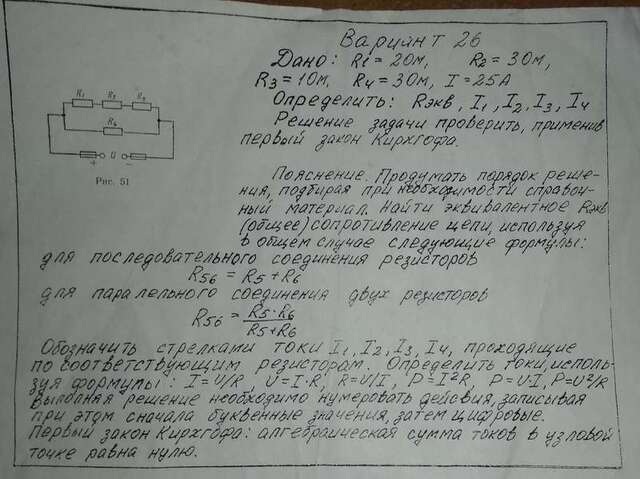 Вариант 26
Дано: R1 = 2Ом, R2 = 3Ом,
R3 = 1Ом, R4 = 3Ом, I = 25А
Определить: Rэкв, I1, I2, I3, I4
Решение задачи проверить, применив
первый закон Кирхгофа.
R1 R2 R3
R4
+ U −
Рис. 51
Пояснение. Продумать порядок реше-
ния, подбирая при необходимости справоч-
ный материал. Найти эквивалентное Rэкв
(общее) сопротивление цепи, используя
в общем случае следующие формулы:
для последовательного соединения резисторов
R56 = R5 + R6
для паралельного соединения двух резисторов
R56 = R5·R6 / R5+R6
Обозначить стрелками токи I1, I2, I3, I4, проходящие
по соответствующим резисторам. Определить токи, исполь-
зуя формулы: I=U/R, U=I·R, R=U/I, P=I²R, P=U·I, P=U²/R
Выполняя решение необходимо нумеровать действия, записывая
при этом сначала буквенные значения, затем цифровые.
Первый закон Кирхгофа: алгебраическая сумма токов в узловой
точке равна нулю.